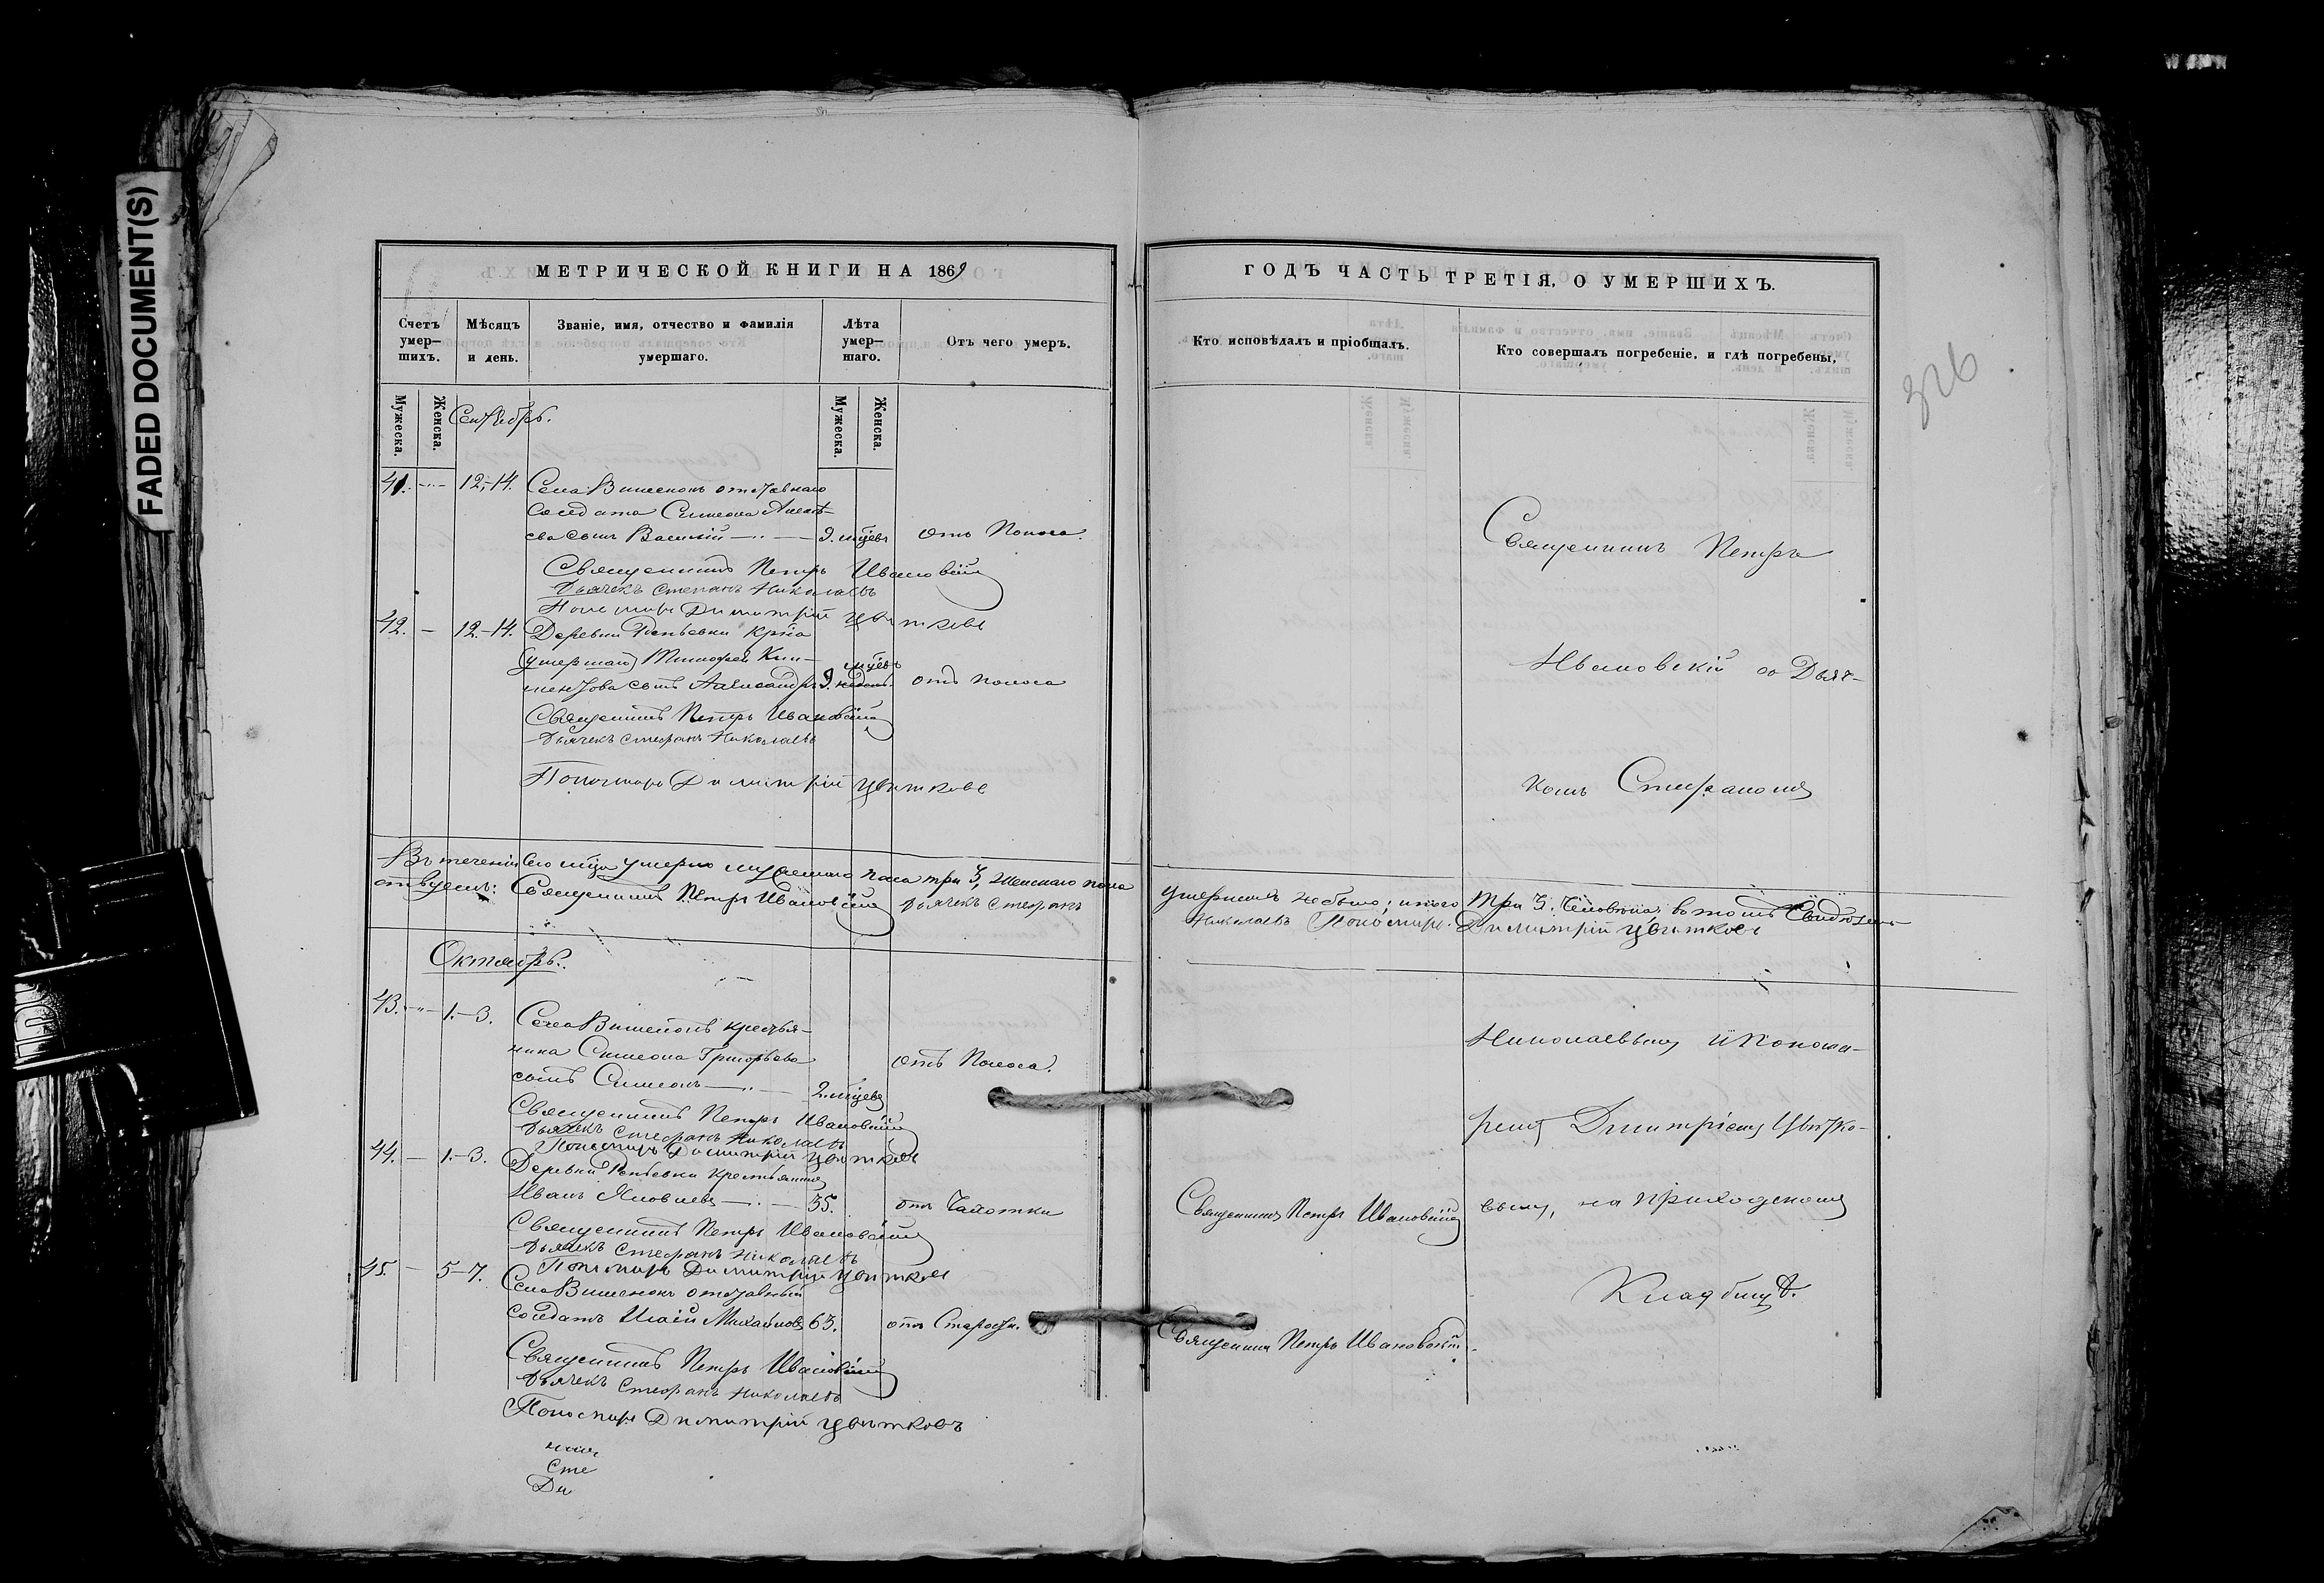 FADED DOCUMENT(S)
МЕТРИЧЕСКОЙ КНИГИ НА 1869
Счетъ умер-шихъ.
Мѣсяцъ и день.
Званіе, имя, отчество и фамилія умершаго.
Лѣта умер-шаго.
Отъ чего умеръ.
Мужеска.
Женска.
Мужеска.
Женска.
Сентябрь.
41. 12.-14. Села Вишенокъ отставнаго
солдата Симеона
сынъ Василій 9. мцевъ отъ Поноса.
Священникъ Петръ Ивановскій
Дьячекъ Стефанъ Николаевъ
Пономарь Димитрій Цвѣтковъ
42. 12.-14. Деревни Репьевки
умершаго Тимофея
сынъ Александръ 9. отъ поноса
Священникъ Петръ Ивановскій
Дьячекъ Стефанъ Николаевъ
Пономарь Димитрій Цвѣтковъ
Въ теченіи сего мца умерло мужескаго пола три 3, женскаго пола
Священникъ Петръ Ивановскій Дьячекъ Стефанъ
Октябрь.
43. 1.-3. Села Вишенокъ крестья-
нина Симеона Григорьева отъ Поноса.
сынъ Симеонъ 2. мцевъ
Священникъ Петръ Ивановскій
Дьячекъ Стефанъ Николаевъ
Пономарь Димитрій Цвѣтковъ
44. 1.-3. Деревни Репьевки крестьянинъ
Иванъ Яковлевъ 35. отъ Чахотки
Священникъ Петръ Ивановскій
Дьячекъ Стефанъ Николаевъ
Пономарь Димитрій Цвѣтковъ
45. 5-7. Села Вишенокъ отставный
солдатъ Михайловъ 63. отъ Старости.
Священникъ Петръ Ивановскій
Дьячекъ Стефанъ Николаевъ
Пономарь Димитрій Цвѣтковъ
Сте
Ди
ГОДЪ ЧАСТЬ ТРЕТІЯ, О УМЕРШИХЪ.
Кто исповѣдалъ и пріобщалъ.
Кто совершалъ погребеніе, и гдѣ погребены,
326
Священникъ Петръ
Ивановскій со Дьяч-
комъ Стефаномъ
умершихъ небыло; итого Три 3. Человѣка, въ томъ Свидѣтель-
Николаевъ Пономарь Димитрій Цвѣтковъ
Николаевымъ и Понома-
ремъ Димитріемъ Цвѣтко-
Священникъ Петръ Ивановскій
вымъ, на приходскомъ
Кладбищѣ.
Священникъ Петръ Ивановскій.